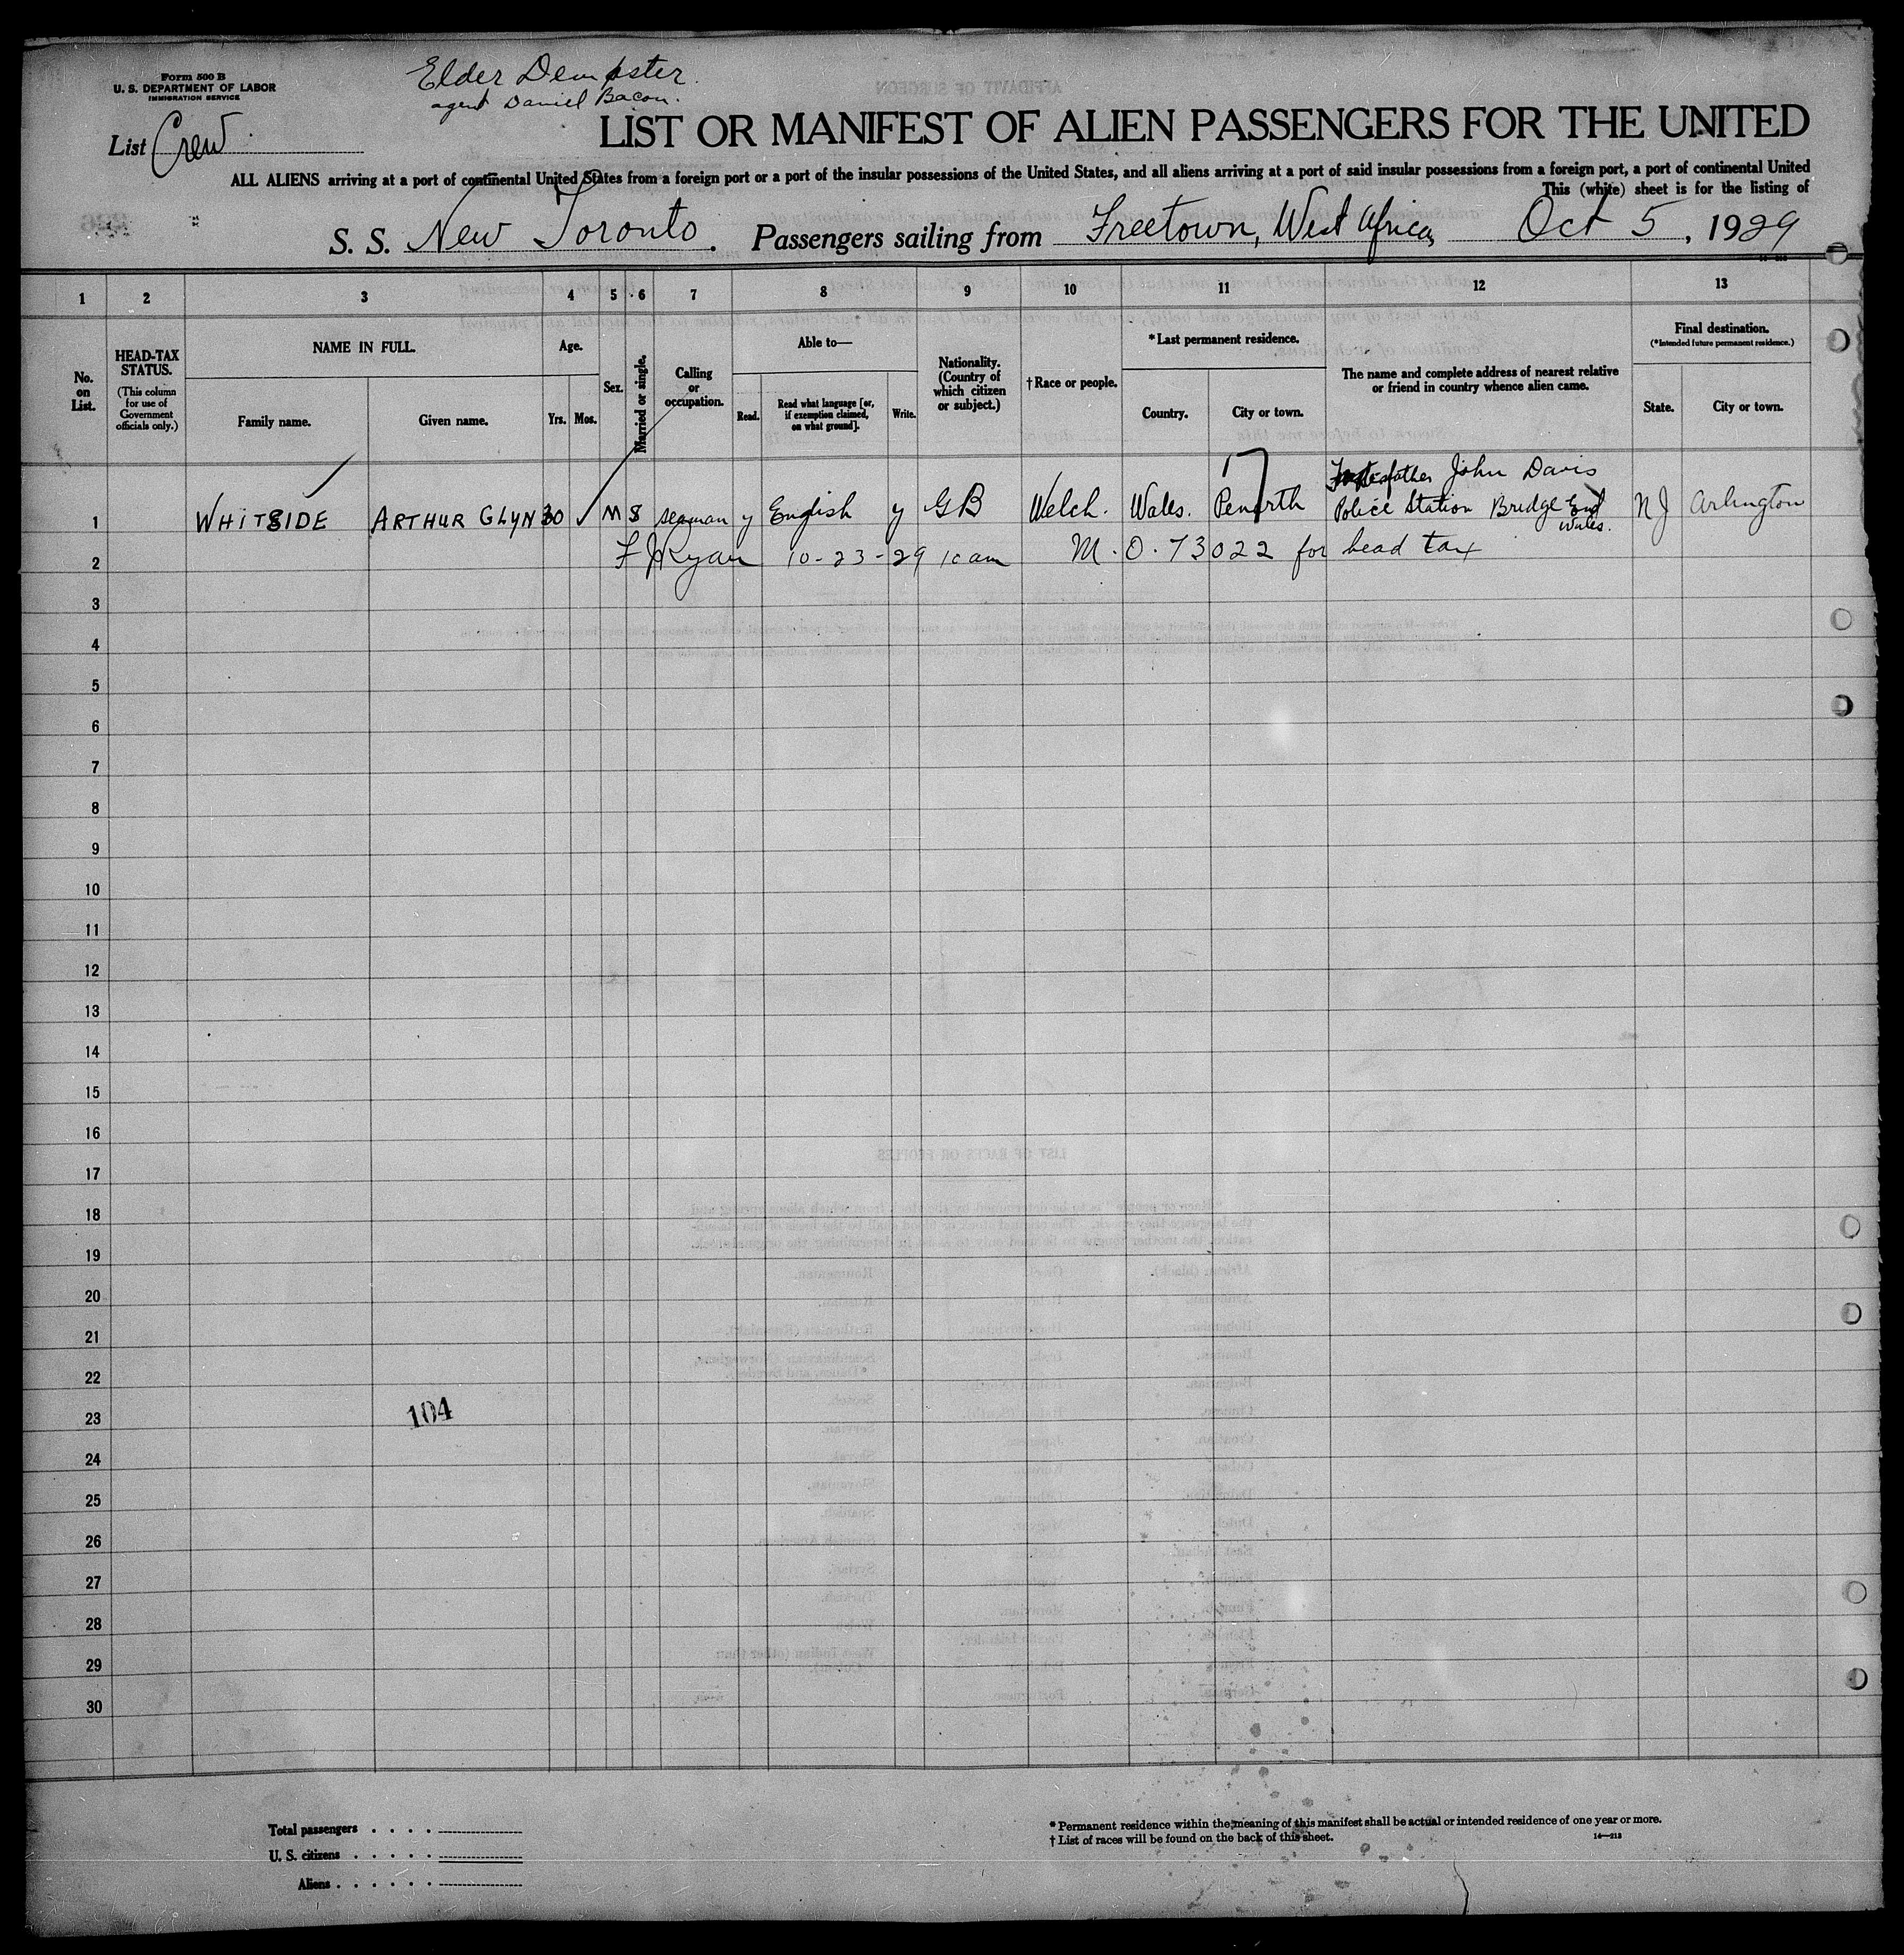 Form 500 B
U. S. DEPARTMENT OF LABOR
IMMIGRATION SERVICE
Elder Dempster.
agent Daniel Bacon.
List Crew
LIST OR MANIFEST OF ALIEN PASSENGERS FOR THE UNITED
ALL ALIENS arriving at a port of continental United States from a foreign port or a port of the insular possessions of the United States, and all aliens arriving at a port of said insular possessions from a foreign port, a port of continental United
This (white) sheet is for the listing of
S. S. New Toronto. Passengers sailing from Freetown, West Africa, Oct 5, 1929
1 2 3 4 5 6 7 8 9 10 11 12 13
No. on List.
HEAD-TAX STATUS.
(This column for use of Government officials only.)
NAME IN FULL.
Family name. Given name.
Age.
Yrs. Mos.
Sex.
Married or single.
Calling or occupation.
Able to—
Read. Read what language [or, if exemption claimed, on what ground]. Write.
Nationality. (Country of which citizen or subject.)
†Race or people.
*Last permanent residence.
Country. City or town.
The name and complete address of nearest relative or friend in country whence alien came.
Final destination.
(*Intended future permanent residence.)
State. City or town.
1 WHITSIDE ARTHUR GLYN 30 ✓ M S seaman y English y GB Welch. Wales. Penarth father John Davis
Police Station Bridge End
Wales.
N J Arlington
2 F J Ryan 10-23-29 10 am M. O. 73022 for head tax
3
4
5
6
7
8
9
10
11
12
13
14
15
16
17
18
19
20
21
22
23
104
24
25
26
27
28
29
30
Total passengers . . . .
U. S. citizens . . . . .
Aliens . . . . . .
* Permanent residence within the meaning of this manifest shall be actual or intended residence of one year or more.
† List of races will be found on the back of this sheet.
14—213